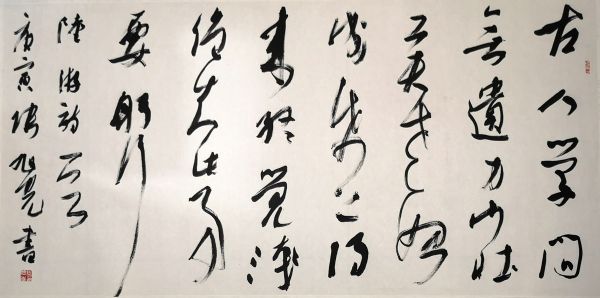 古人學問
無遺力少壮
工夫老始
成紙上得
来終覺淺
絶知此事
要躬行
陸游詩
庚寅旭亮書